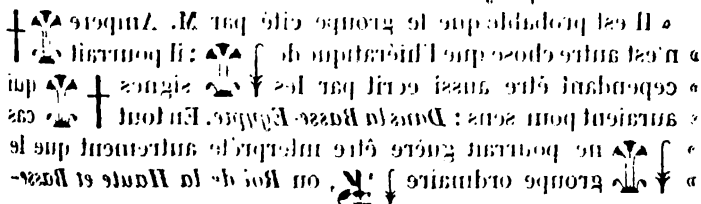 « Il est probable que le groupe cité par M. Ampère
» n'est autre chose que l'hiératique de : il pourrait
» cependant être aussi ecrit par les signes qui
» auraient pour sens : Dans la Basse-Egypte. En tout cas
» ne pourrait guère être interprété autrement que le
» groupe ordinaire , ou Roi de la Haute et Basse-